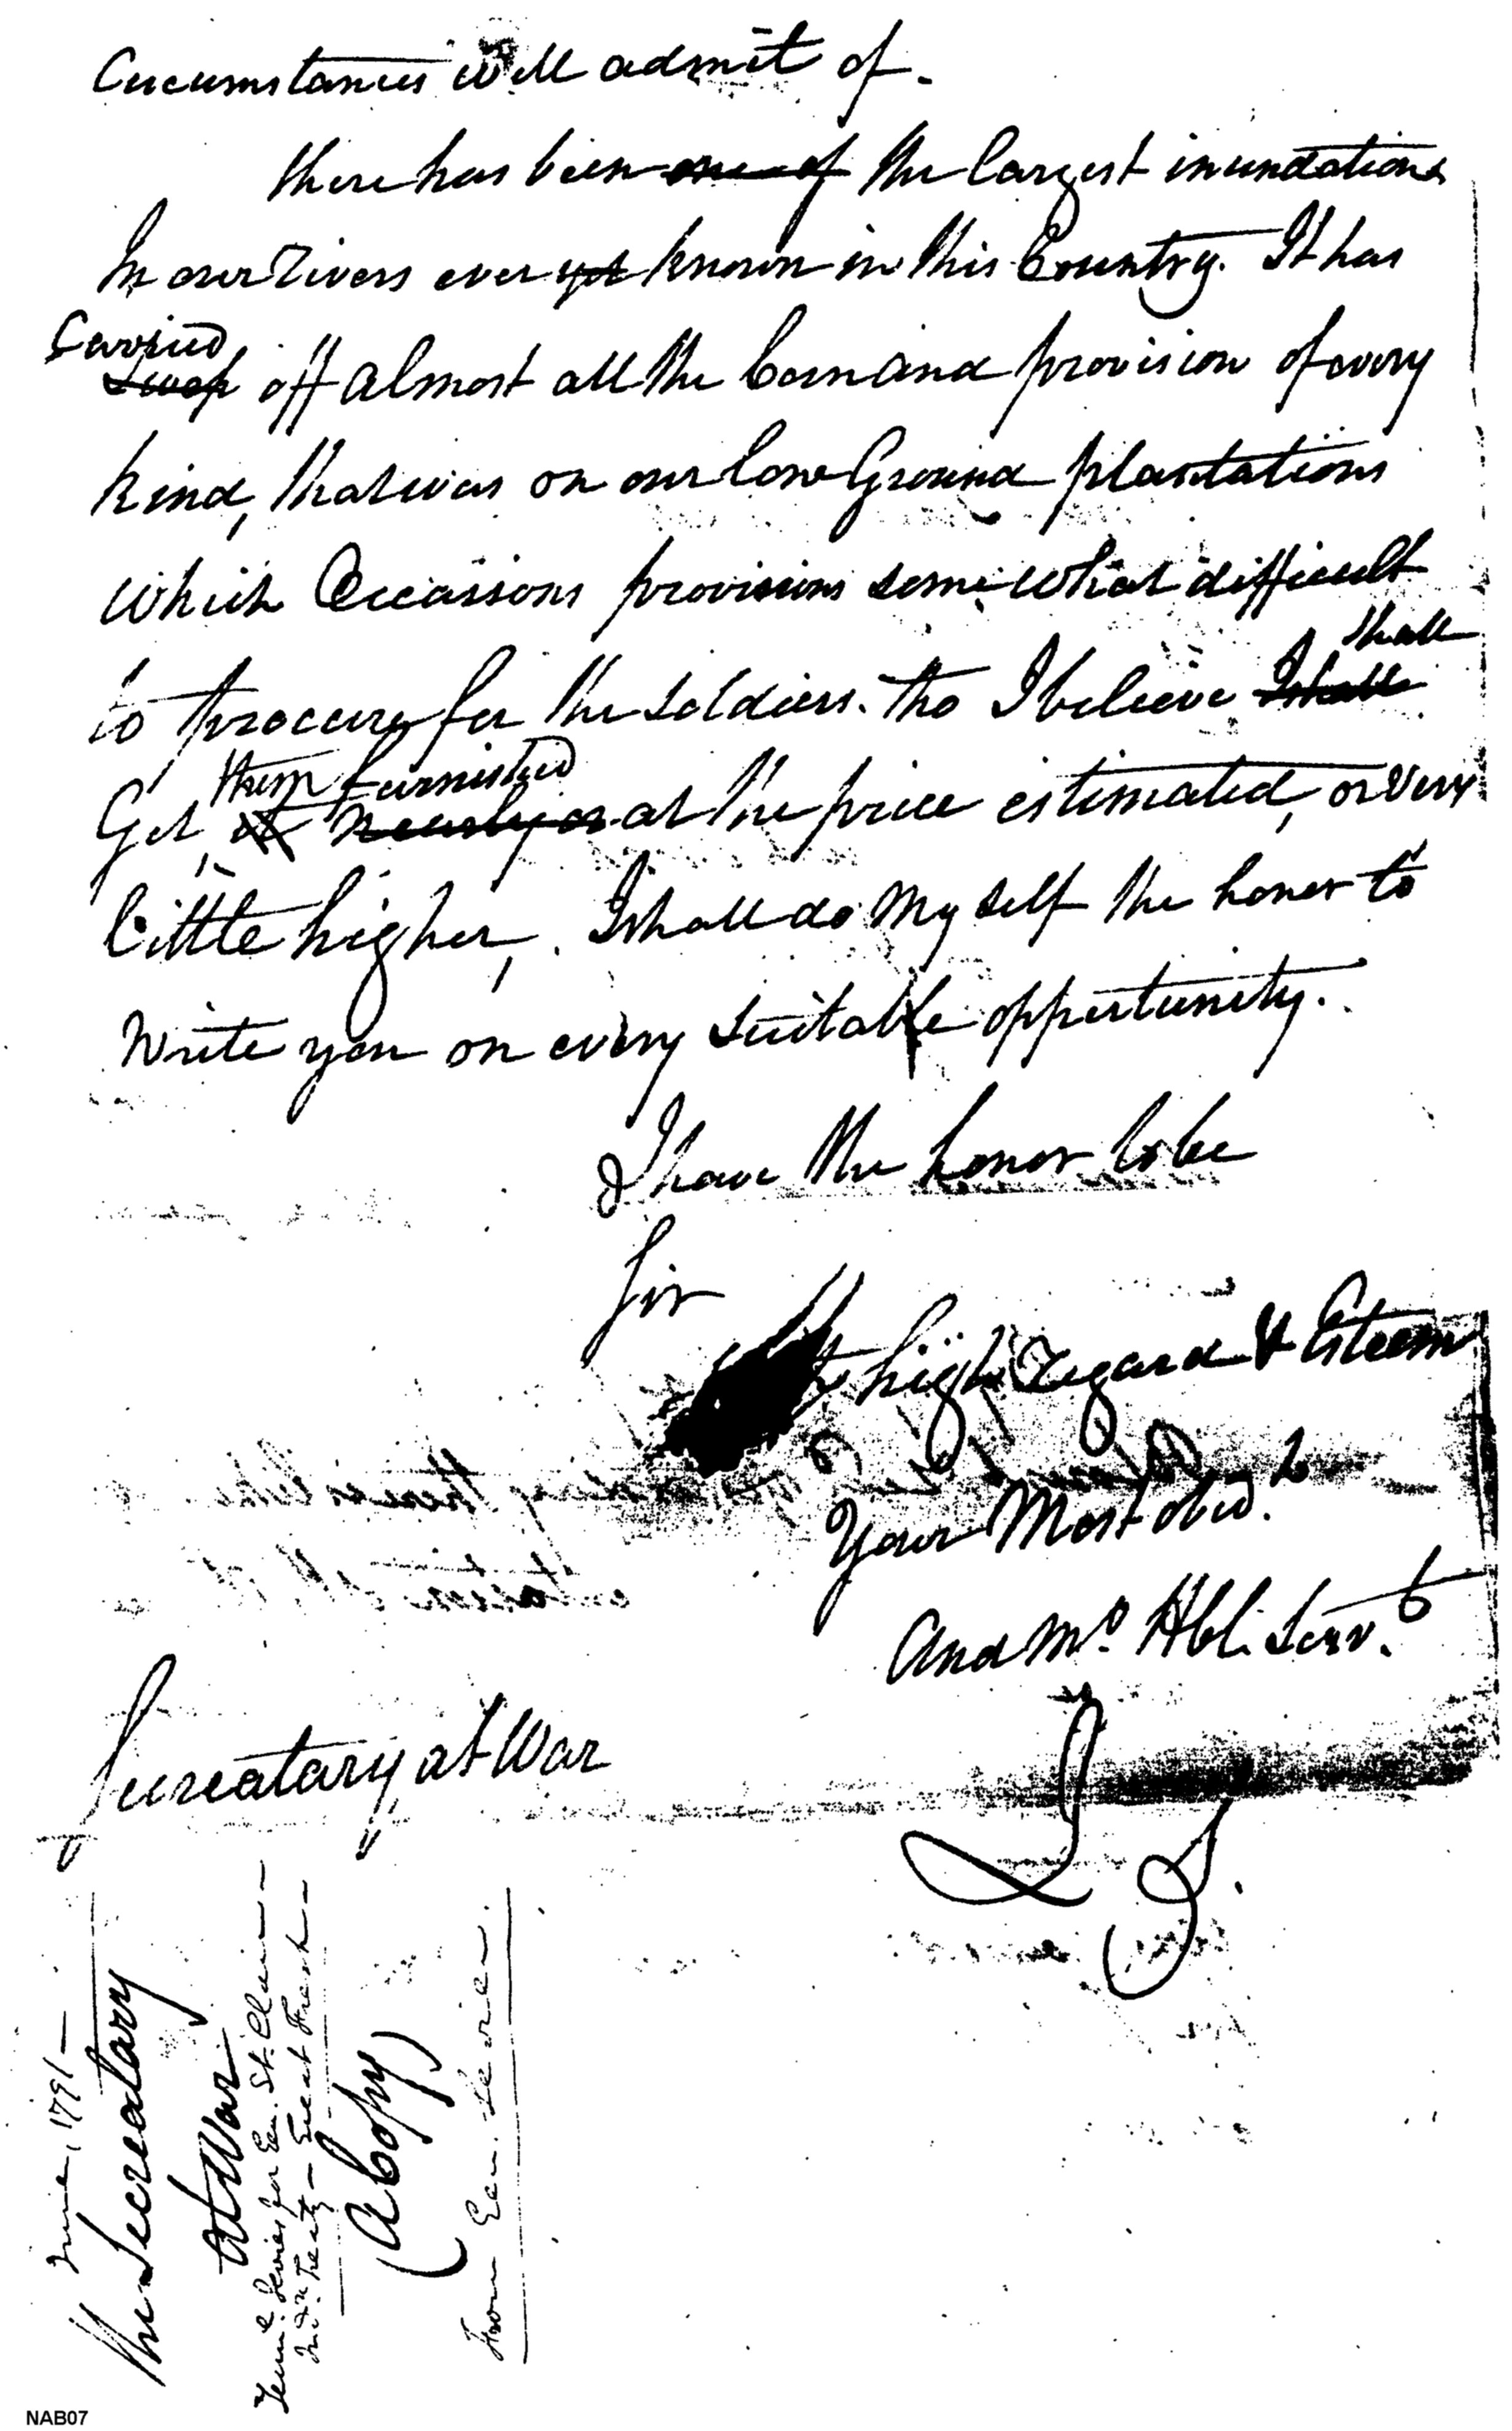 Cucumstances will admit of.
there has been one of the largest inundations
In our Rivers ever yet known in this Country. It has
Carried
Swep off almost all the Corn and provision of every
kind, that was on our low Ground plantations
which Occassons provisions some what difficult
to procure for the soldiers. tho I beleeve I shall
shall
them furnished
Get, it nearly or at the price estimated, or very
little higher, I shall do my self the honor to
Write you on every suitable opportunity.
I have the honor to be
Sir
high regard & Esteem
Your Most obed.t
And Mo. Hbl. Serv.t
J. S.
Secreatary at War
June, 1791—
the Secreatary
at War
Tenn.e Sevier for Gen. St. Clair—
Ind.n Treaty — Great Fresh—
(a Copy)
From Gen. Sevier.
NAB07